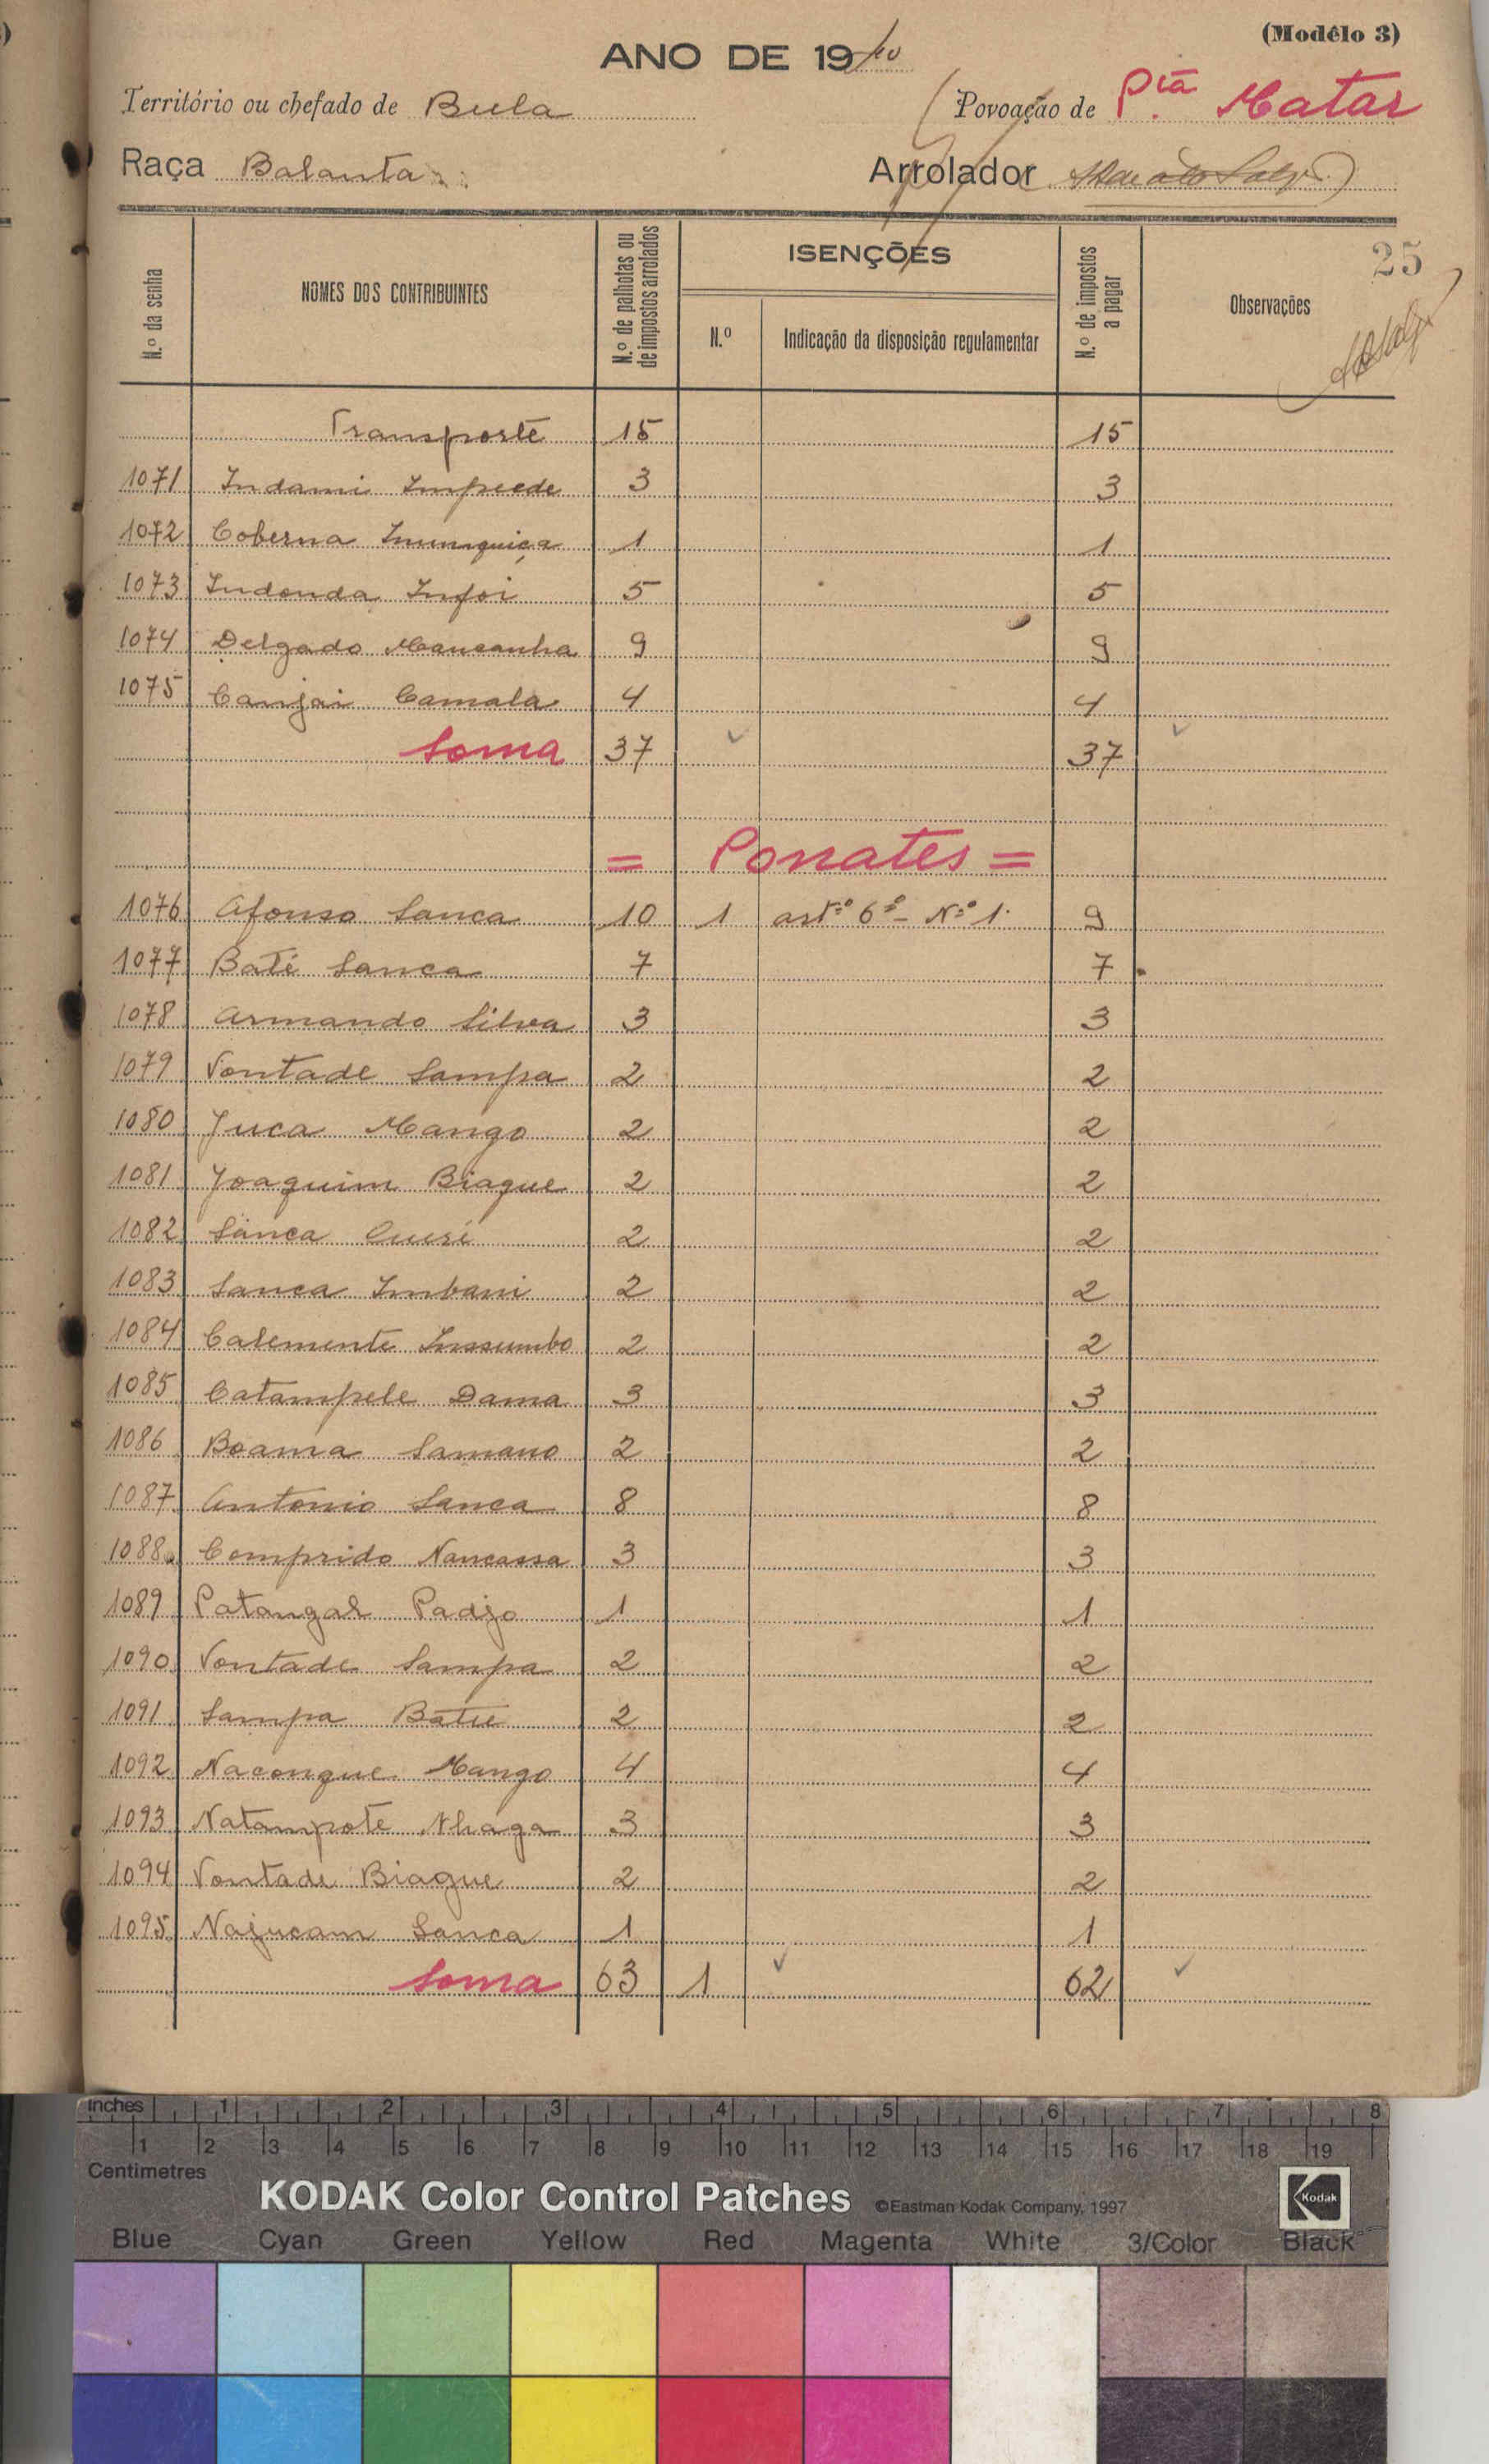 (Modêlo 3)
ANO DE 19
Território ou chefado de Bula
Povoação de P.ta Matar
Raça Balanta
Arrolador
25
N.º da senha
NOMES DOS CONTRIBUINTES
N.º de palhotas ou de impostos arrolados
ISENÇÕES
N.º
Indicação da disposição regulamentar
N.º de impostos a pagar
Observações
Transporte 15 15
1071 Indami Impeede 3 3
1072 Coberna 1 1
1073 Indonda Infoi 5 5
1074 Delgado Mancanha 9 9
1075 Canjai Camala 4 4
Soma 37 37
= Ponates =
1076 Afonso Sanca 10 1 art.º 6º - N.º 1. 9
1077 Baté Sanca 7 7
1078 Armando Silva 3 3
1079 Vontade Sampa 2 2
1080 Juca Mango 2 2
1081 Joaquim Biague 2 2
1082 Sanca 2 2
1083 Sanca Imbani 2 2
1084 Calemente Inssumbo 2 2
1085 Catampele Dama 3 3
1086 Boama Samano 2 2
1087 Antonio Sanca 8 8
1088 Comprido Nancassa 3 3
1089 Patangal Padjo 1 1
1090 Vontade Sampa 2 2
1091 Sampa Batie 2 2
1092 Nacongue Mango 4 4
1093 Natampote Nhaga 3 3
1094 Vontade Biague 2 2
1095 Najucam Sanca 1 1
Soma 63 1 62
Inches 1 2 3 4 5 6 7 8
1 2 3 4 5 6 7 8 9 10 11 12 13 14 15 16 17 18 19
Centimetres
KODAK Color Control Patches ©Eastman Kodak Company, 1997 Kodak
Blue Cyan Green Yellow Red Magenta White 3/Color Black